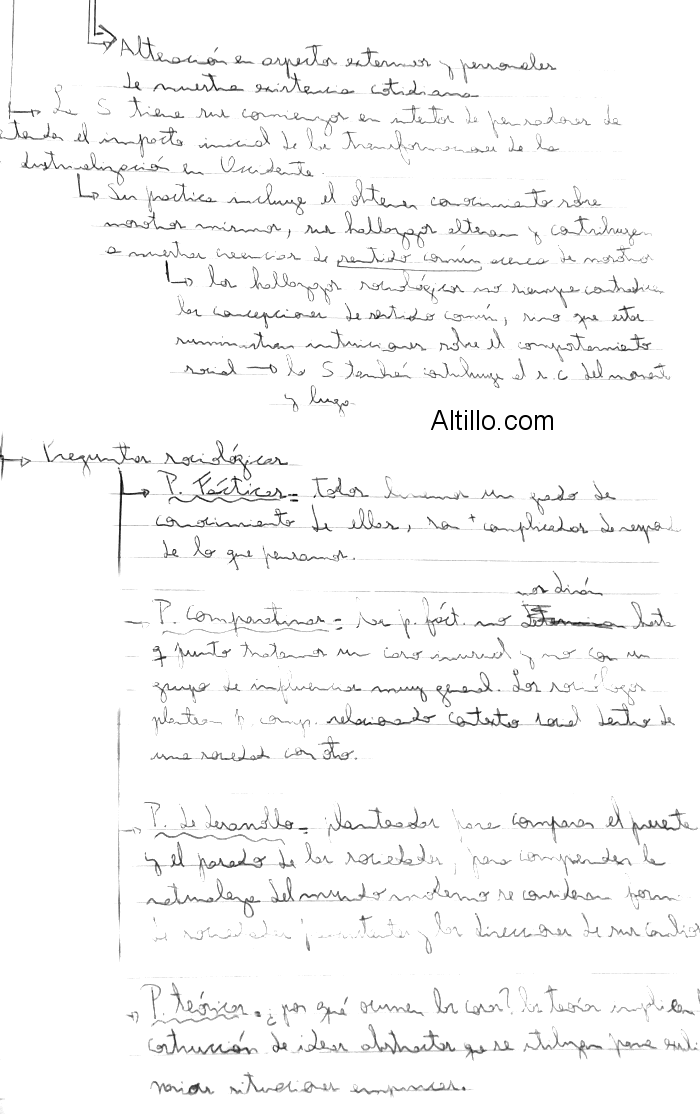 Alteración en aspectos externos y personales
de nuestra existencia cotidiana
La S tiene sus comienzos en intentos de pensadores de
entender el impacto inicial de las transformaciones de la
industrialización en Occidente.
Su practica incluye el obtener conocimiento sobre
nosotros mismos, sus hallazgos alteran y contribuyen
a nuestras creencias de sentido común acerca de nosotros
los hallazgos sociológicos no siempre contradicen
las concepciones de sentido común, sino que estas
suministran intuiciones sobre el comportamiento
social → la S también contribuye el s.c del
y luego
Altillo.com
Preguntas sociológicas
P. Fácticas = todos tenemos un grado de
conocimiento de ellas, son + complicadas de
de lo que pensamos.
nos dirán
P. Comparativas = las p. fáct. no hasta
q punto tratamos un caso inusual y no con un
grupo de influencias muy general. Los sociólogos
plantean p. comp. relacionado contexto social dentro de
una sociedad con otro.
P. de desarrollo = planteadas para comparar el presente
y el pasado de las sociedades, para comprender la
naturaleza del mundo moderno se consideran form
de sociedades y las direcciones de sus cambios
P. teóricas = ¿por qué ocurren las cosas? las teorías implican l
construcción de ideas abstractas que se utilizan para expli
varias situaciones empíricas.